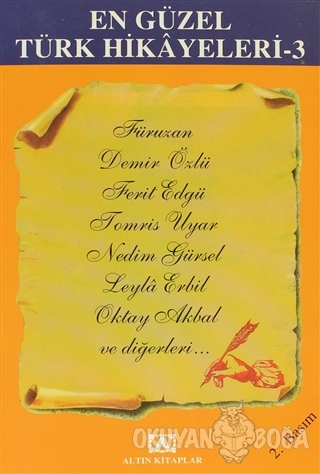 EN GÜZEL
TÜRK HİKÂYELERİ-3
Füruzan
Demir Özlü
Ferit Edgü
Tomris Uyar
Nedim Gürsel
Leylâ Erbil
Oktay Akbal
ve diğerleri...
2. Basım
OKUYAN BOĞA
ALTIN KİTAPLAR